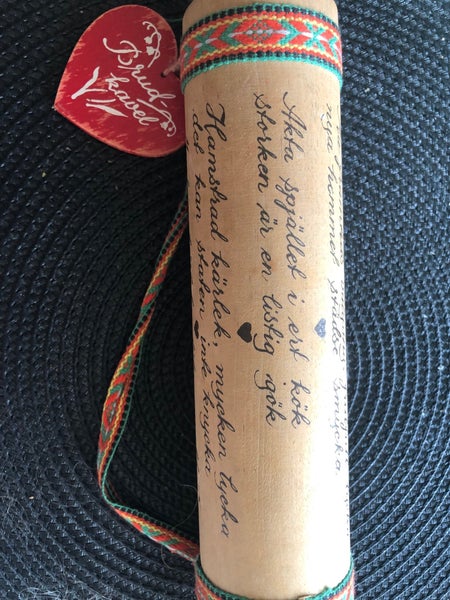 Brud-
kavel
nya hemmet
smycka
Akta spjället i ert kök
storken är en listig gök
Hamstrad kärlek, mycken lycka
det kan staten inte knycka